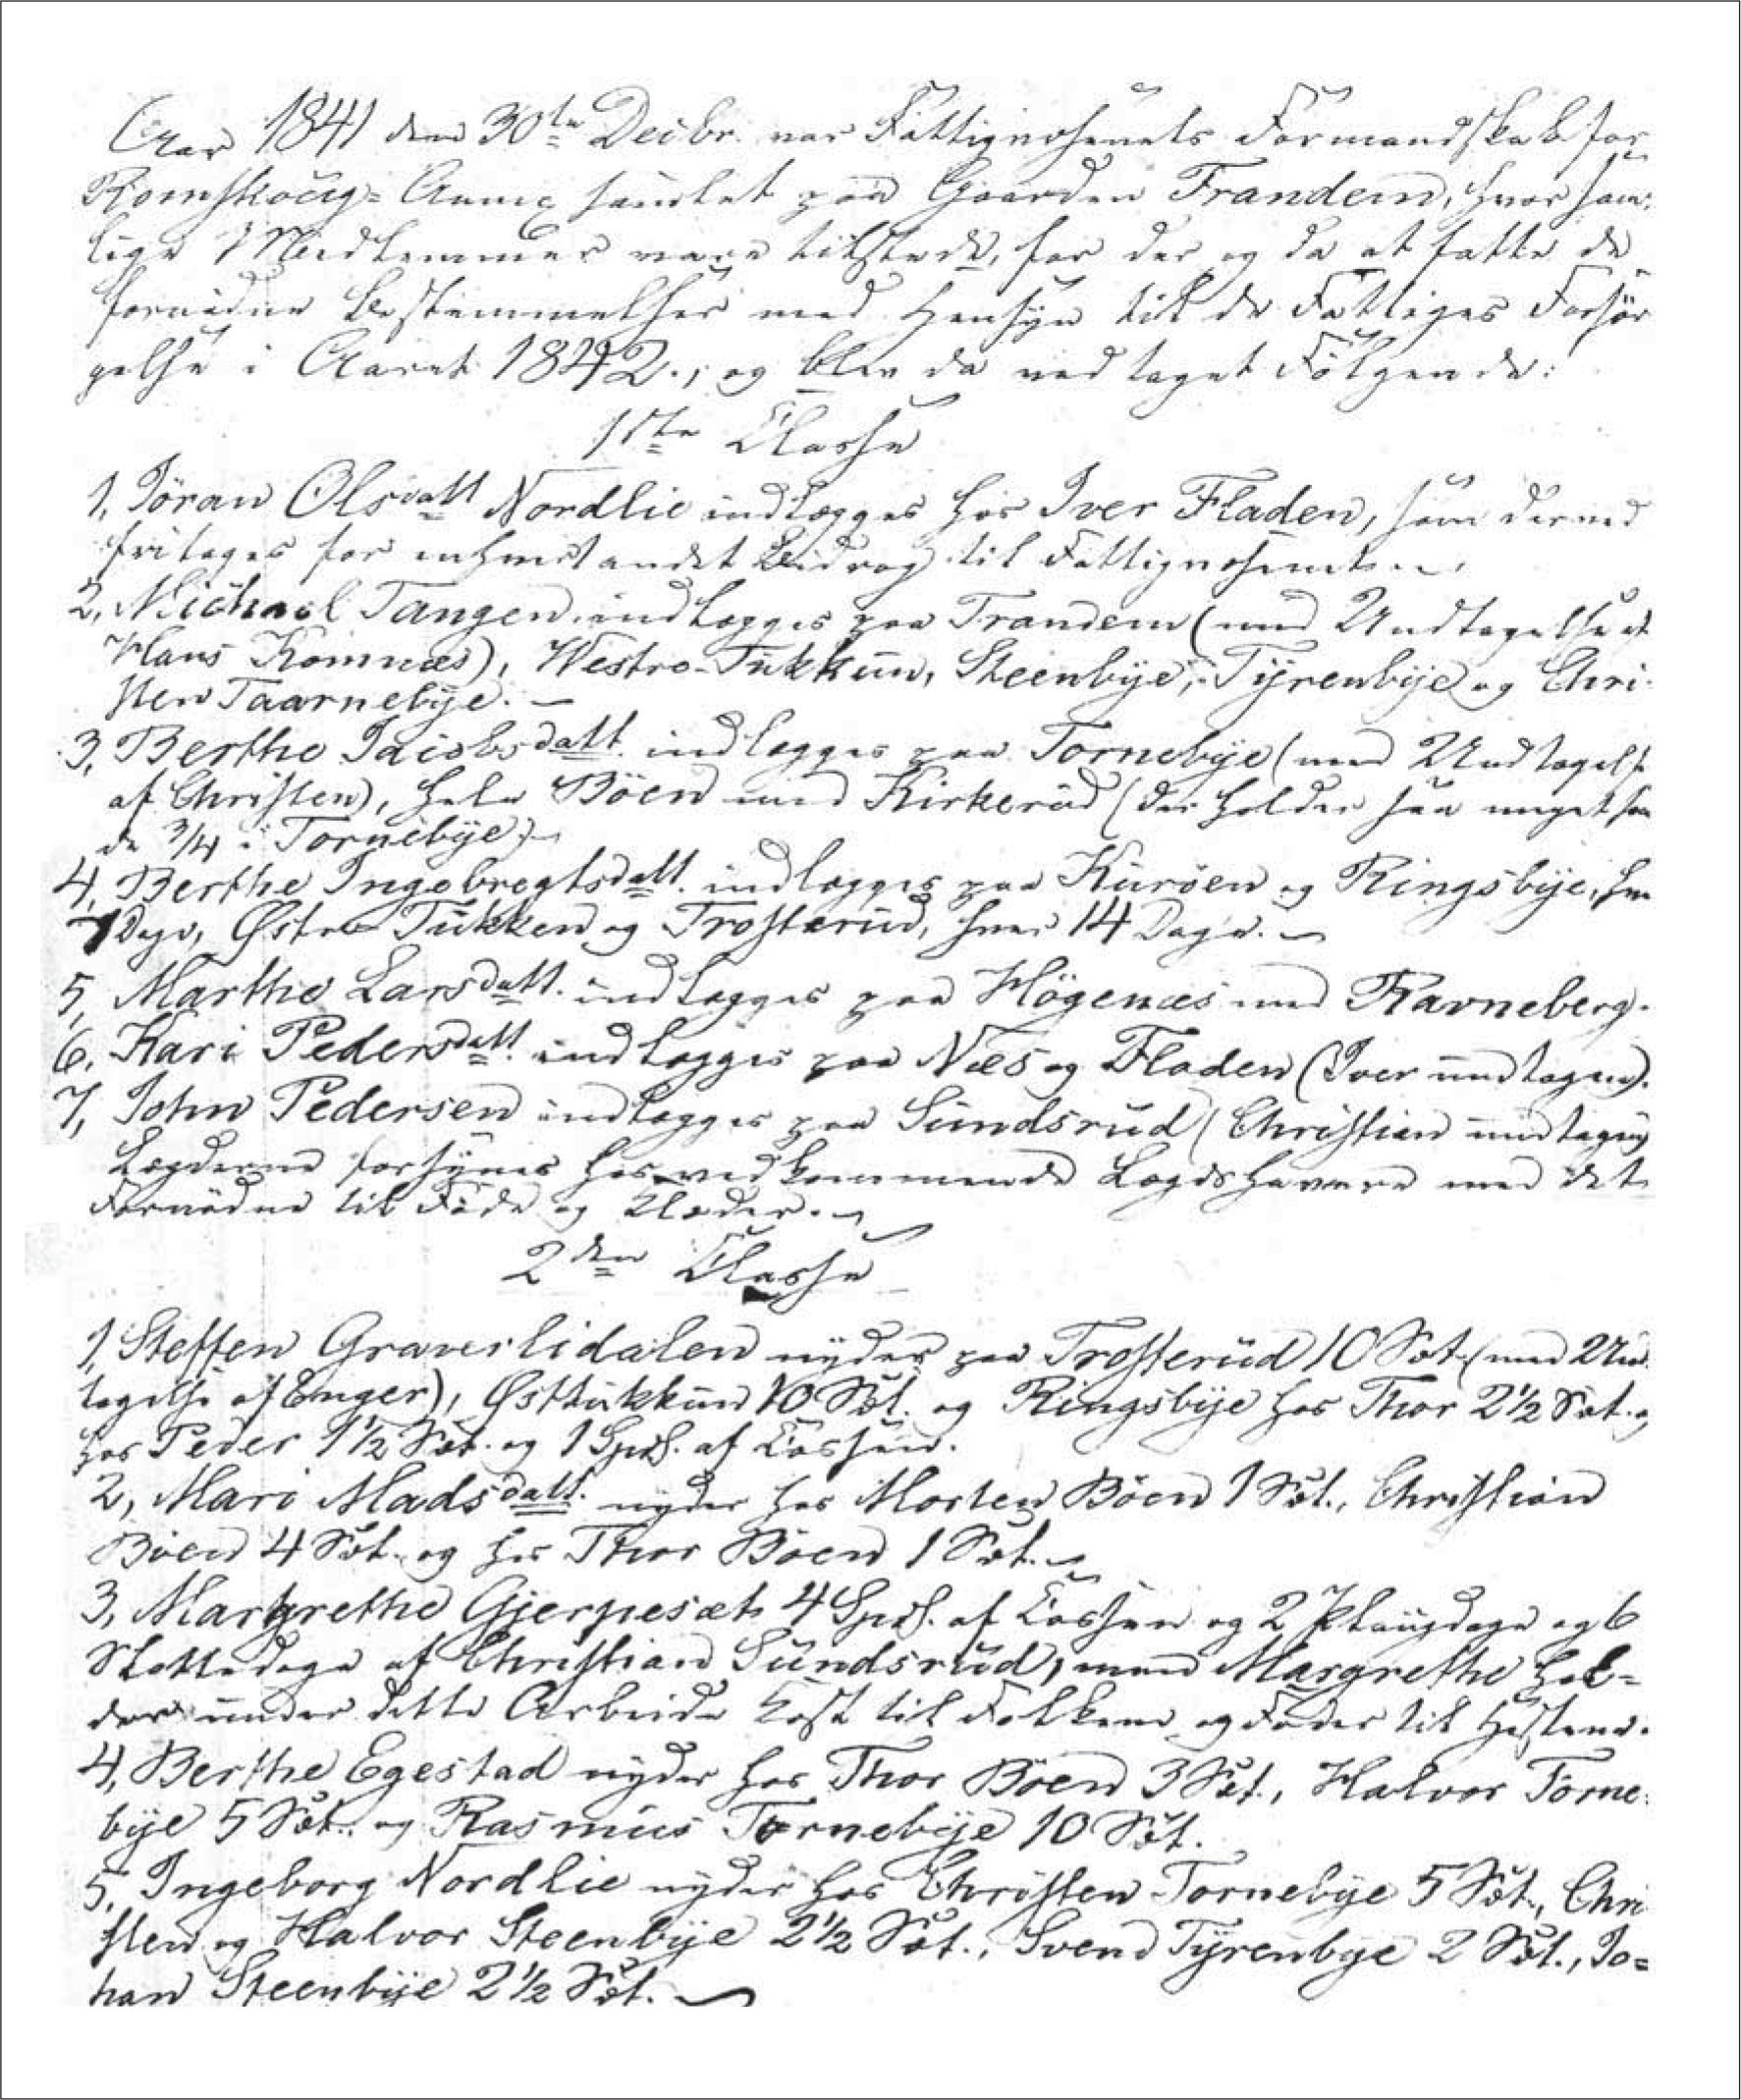 Aar 1841 den 30te Decbr. var Fattigvæsenets Formandskab for
Romskoug-Annex samlet paa Gaarden Trandem, hvor sam-
lige Medlemmer vare tilstede, for der og da at fatte de
fornødne Bestemmelser med Hensyn til de Fattiges Forsør
gelse i Aaret 1842., og blev da vedtaget Følgende:
1ste Classe
1, Jöran Olsdatt Nordlie indlægges hos Iver Fladen, som derved
fritages for enhver andet Bidrag til Fattigvæsenet.
2, Michael Tangen indlægges paa Trandem (med Undtagelse af
Hans Komnæs), Westre-Tukkun, Steenbÿe, Tÿrenbÿe og Chri-
sten Taarnebÿe. —
3, Berthe Jacobsdatt. indlægges paa Tornebÿe (med Undtagelse
af Christen), hele Böen med Kirkerud (der holder saa meget som
de 3/4 i Tornebÿe) —
4, Berthe Ingebregtsdatt. indlægges paa Kuröen og Ringsbÿe, hver
7 Dage, Østre Tukken og Trosterud, hver 14 Dage. —
5, Marthe Larsdatt. indlægges paa Högenæs med Ravneberg.
6, Kari Pedersdatt. indlægges paa Næs og Fladen (Iver undtagen).
7, John Pedersen indlægges paa Sundsrud (Christian undtagen)
Lægderne forsÿnes hos vedkommende Lægdshavere med det
Fornødne til Føde og Klæder. —
2den Classe
1, Steffen Graverlidalen nyder paa Trosterud 10 Sæt. (med Und-
tagelse af Enger), Østtukkun 10 Sæt. og Ringsbÿe hos Thor 2 1/2 Sæt. og
hos Peder 1 1/2 Sæt. og 1 Spd. af Cassen.
2, Mari Madsdatt. nyder hos Morten Böen 1 Sæt., Christian
Böen 4 Sæt. og hos Thor Böen 1 Sæt. —
3, Margrethe Gjerpesæt 4 Spd. af Cassen og 2 Plougdage og 6
Skattedage af Christian Sundsrud, men Margrethe hol-
der under dette Arbeide Kost til Folkene og Foder til Hestene.
4, Berthe Egestad nyder hos Thor Böen 3 Sæt., Halvor Torne-
bÿe 5 Sæt. og Rasmus Tornebÿe 10 Sæt.
5, Ingeborg Nordlie nyder hos Christen Tornebÿe 5 Sæt., Chri
sten og Halvor Steenbÿe 2 1/2 Sæt., Svend Tÿrenbÿe 2 Sæt., Jo-
han Steenbÿe 2 1/2 Sæt. —